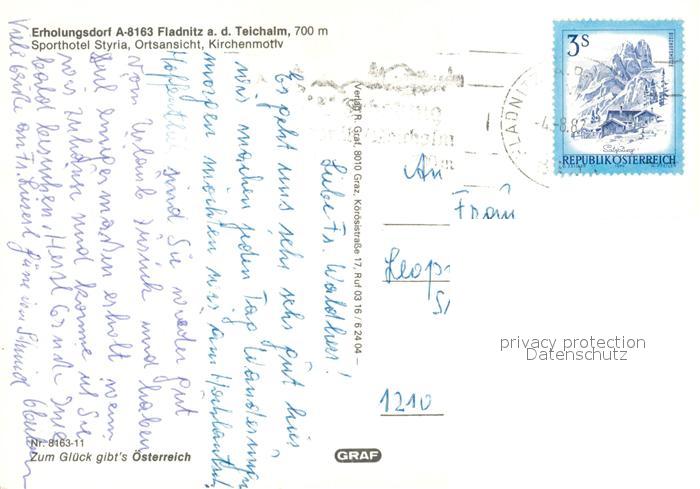 Erholungsdorf A-8163 Fladnitz a. d. Teichalm, 700 m
Sporthotel Styria, Ortsansicht, Kirchenmotiv
Liebe Fr. Waldher!
Es geht uns sehr sehr gut hier
wir machen jeden Tag Wanderungen
morgen möchten wir am Hochlantsch
Hoffentlich sind Sie wieder gut
vom Urlaub zurück und haben
sich einigermaßen erholt wenn
wir zuhause sind komme ich Sie
bald besuchen. Herzl Grüße Ihre
Viele Grüße an Fr.
Verlag R. Graf, 8010 Graz, Körösistraße 17, Ruf 03 16 / 6 24 04 –
3 S
Salzburg
REPUBLIK ÖSTERREICH
FLADNI
-4.-8.8
An
Frau
Leop
1210
privacy protection
Datenschutz
Nr. 8163-11
Zum Glück gibt's Österreich
GRAF